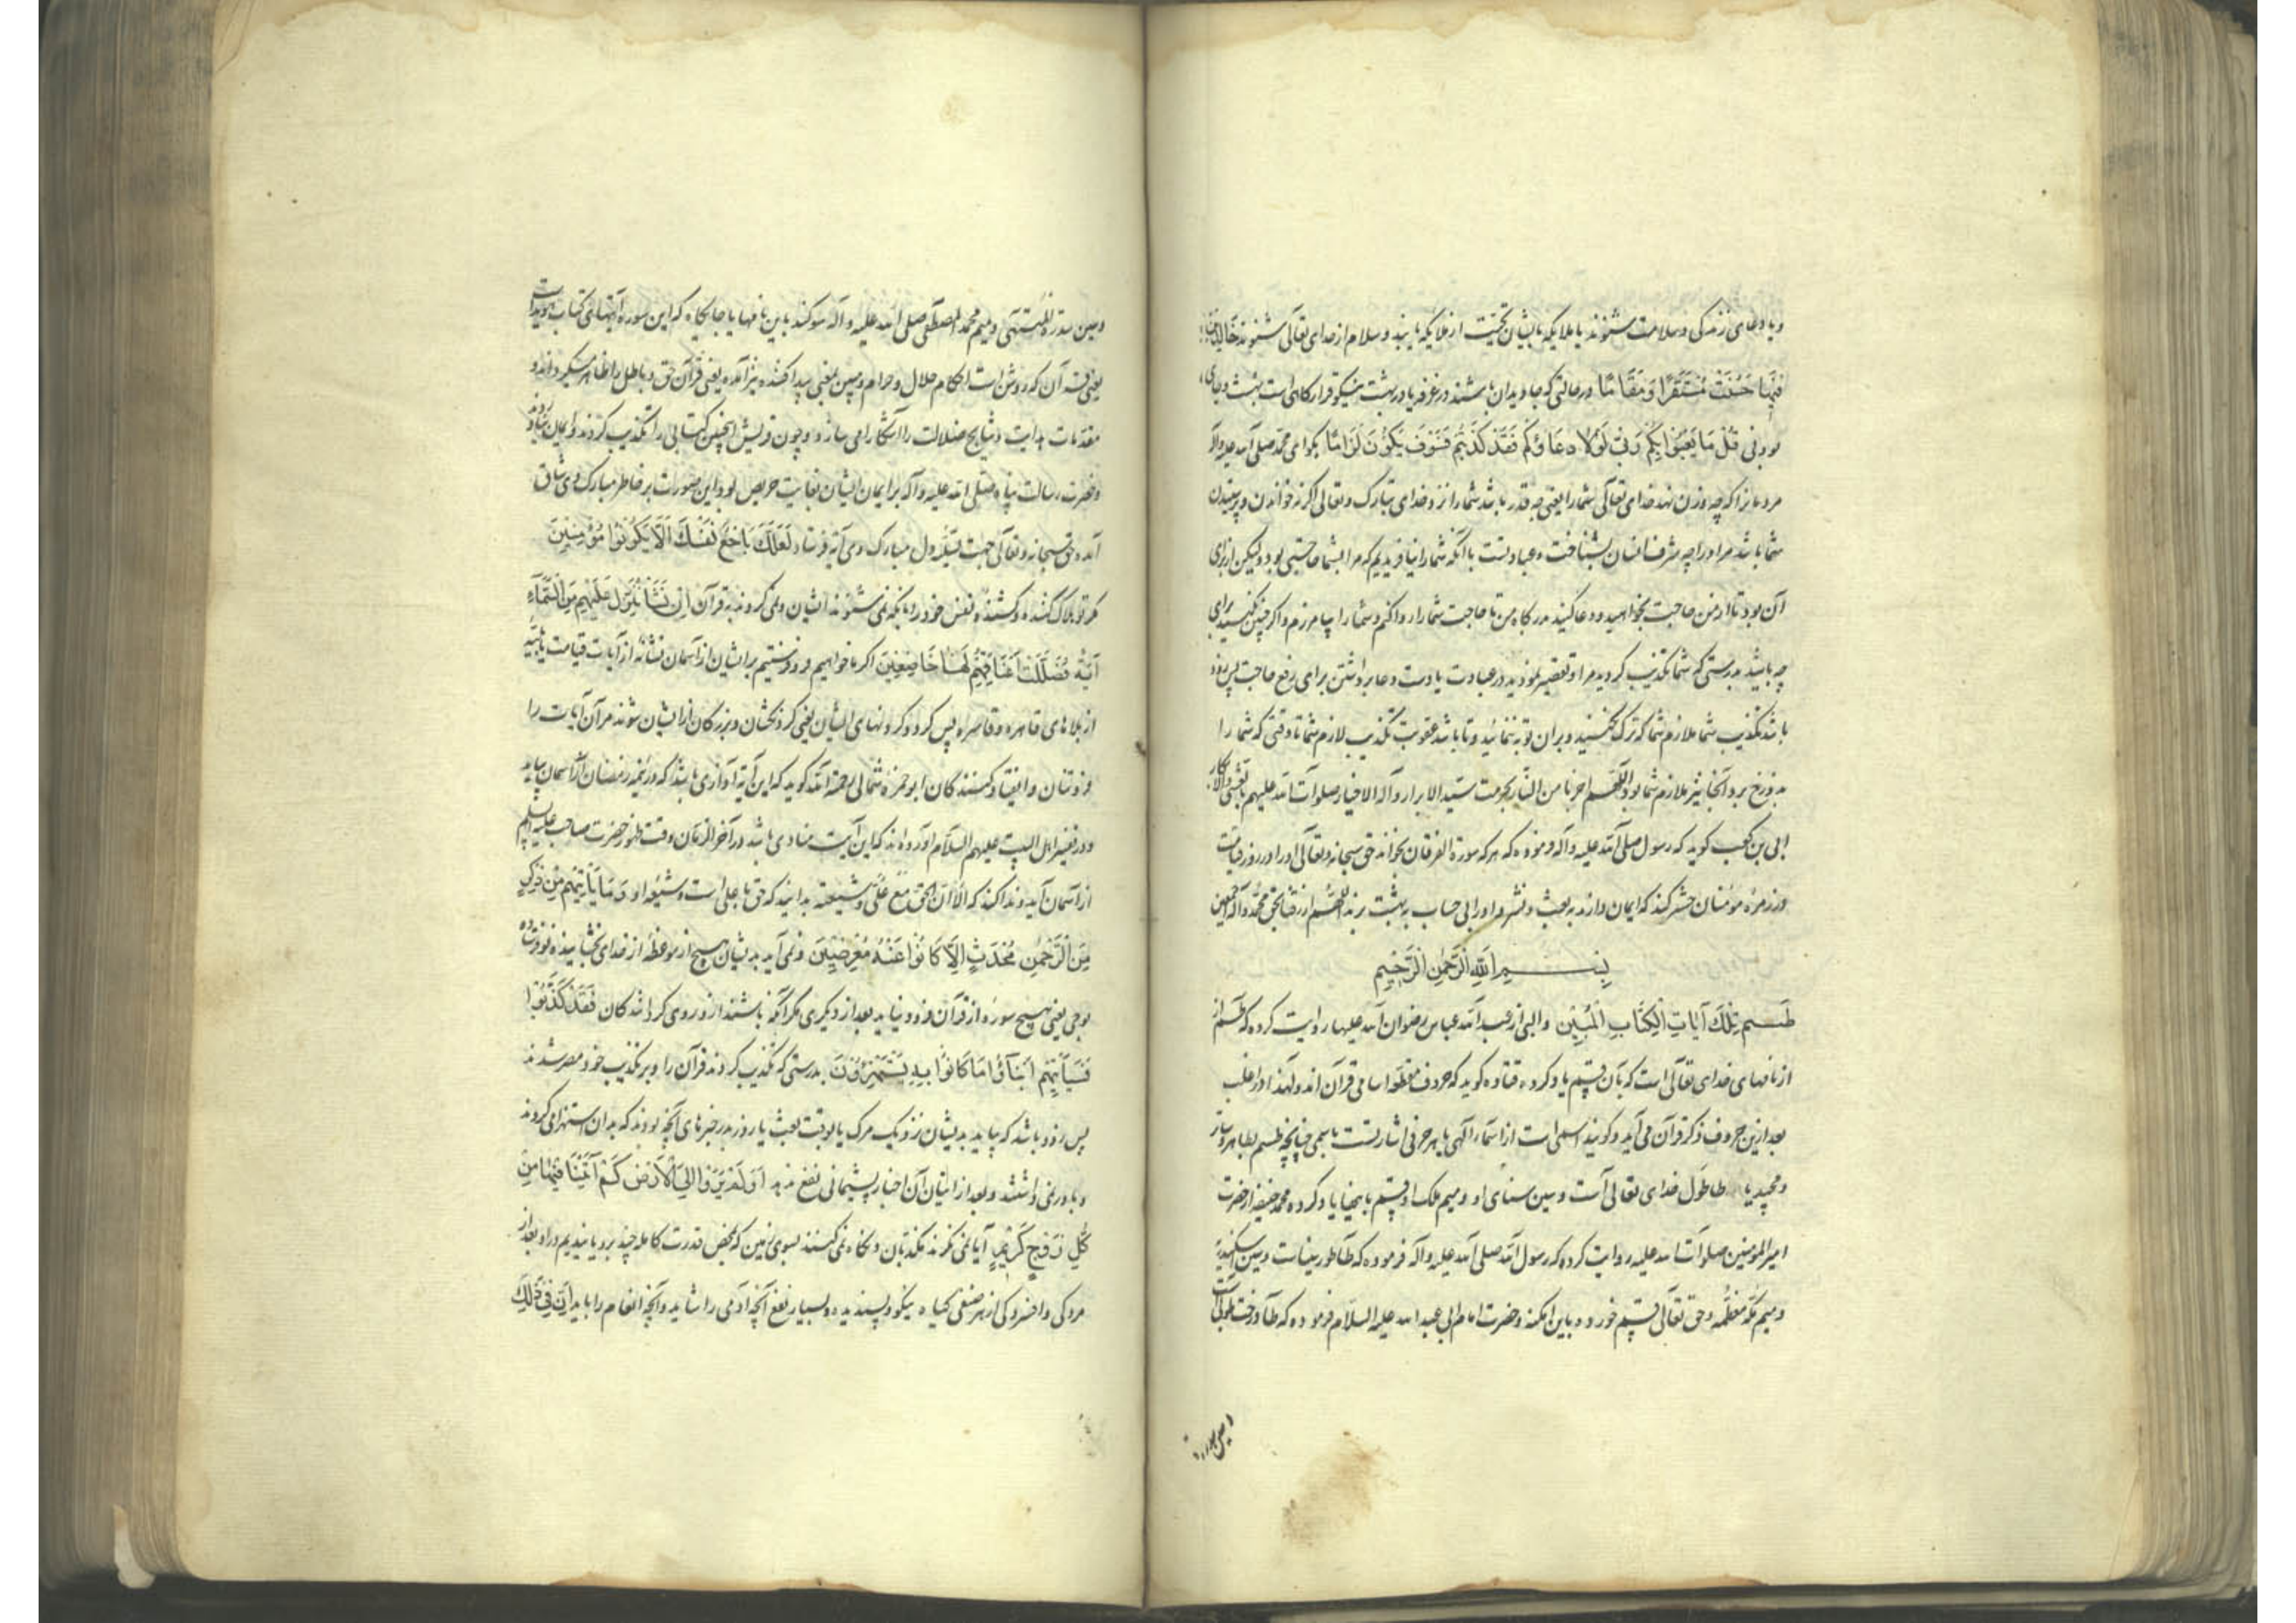 و یا دعای زندگی و سلامت شنوند یا ملایکه بایشان تحیّت از ملایکه یابند و سلام از خدای تعالی شنوند خَالِدِینَ
فِیهَا حَسُنَتْ مُسْتَقَرًّا وَمُقَامًا در حالتی که جاویدان باشند در غرفه یا در بهشت نیکو قرارگاهی است بهشت و جای
بودنی قُلْ مَا یَعْبَؤُا بِکُمْ رَبِّی لَوْلَا دُعَاؤُکُمْ فَقَدْ کَذَّبْتُمْ فَسَوْفَ یَکُونُ لِزَامًا بگو ای محمد صلی الله علیه و آله
مردمانرا که چه وزن نهد خدای تعالی شما را یعنی چه قدر باشد شما را نزد خدای تبارک و تعالی اگر نه خواندن و پرستیدن
شما باشد مر او را چه شرف انسان بشناخت و عبادتست با آنکه شما را نیافریدیم که مرا بشما حاجتی بود ولیکن از برای
آن بود تا از من حاجت بخواهید و دعا کنید بدرگاه من تا حاجت شما را روا کنم و شما را بیامرزم و اگر چنین نکنید برای
چه باشید بدرستی که شما تکذیب کردید مرا و تقصیر نمودید در عبادت یا دست دعا برداشتن برای رفع حاجت پس زود
باشد تکذیب شما ملازم شما که ترک نکنید و بران توبه ننمائید و تا باشد عقوبت تکذیب لازم شما تا وقتی که شما را
بدوزخ برد و آنجا نیز ملازم شما بود اللّهم اجرنا من النّار بحرمت سیّد الابرار و آله الاخیار صلوات الله علیهم بالعشی والابکار
ابی بن کعب گوید که رسول صلی الله علیه و آله فرموده که هر که سورة الفرقان بخواند حق سبحانه و تعالی او را در روز قیامت
در زمرهٔ مؤمنان حشر کند که ایمان دارند به بعث و نشر و او را بی حساب به بهشت برند اللّهم ارزقنا بحق محمد و آله اجمعین
بِسْمِ اللَّهِ الرَّحْمَٰنِ الرَّحِیمِ
طسم تِلْکَ آیَاتُ الْکِتَابِ الْمُبِینِ والبی از عبد الله عباس رضوان الله علیهما روایت کرده که طسم از
از نامهای خدای تعالی است که بآن قسم یاد کرده قتاده گوید که حروف مقطعه اسامی قرآن اند و لهذا در اغلب
بعد ازین حروف ذکر قرآن می آید و گویند اسمی است از اسماء الهی یا هر حرفی اشارتست باسمی چنانچه طسم بطاهر و ستار
و مجید یا طا طول خدای تعالی است و سین سنای او و میم ملک او قسم باینها یاد کرده محمد حنفیه از حضرت
امیر المؤمنین صلوات الله علیه روایت کرده که رسول الله صلی الله علیه و آله فرموده که طا طور سیناست و سین سکندریه
و میم مکهٔ معظمه و حق تعالی قسم خورده باین امکنه و حضرت امام ابی عبد الله علیه السلام فرموده که طا درخت طوبی است
و سین سدرة المنتهی و میم محمد المصطفی صلی الله علیه و آله سوگند باین نامها یا جایگاه که این سوره آیتهای کتاب هویداست
یعنی قرآن که روشن است احکام حلال و حرام و مبین بمعنی پیدا کننده نیز آمده یعنی قرآن حق و باطل را ظاهر میگرداند و
مقدمات هدایت و نتایج ضلالت را آشکارا می سازد و چون قریش اینچنین کتابی را تکذیب کردند و ایمان نیاوردند
و حضرت رسالت پناه صلی الله علیه و آله بر ایمان ایشان بغایت حریص بود این صورت بر خاطر مبارک وی شاق
آمده حق سبحانه و تعالی جهت تسلّی دل مبارک وی آیه فرستاد لَعَلَّکَ بَاخِعٌ نَفْسَکَ أَلَّا یَکُونُوا مُؤْمِنِینَ
مگر تو هلاک کننده و کشندهٔ نفس خود را بآنکه نمی شنوند ایشان و نمی گروند به قرآن إِنْ نَشَأْ نُنَزِّلْ عَلَیْهِمْ مِنَ السَّمَاءِ
آیَةً فَظَلَّتْ أَعْنَاقُهُمْ لَهَا خَاضِعِینَ اگر ما خواهیم فرو فرستیم بر ایشان از آسمان نشانهٔ از آیات قیامت یا بلیه
از بلاهای قاهره و قاصره پس گردد گردنهای ایشان یعنی گردنکشان و بزرگان از ایشان شوند مر آن آیات را
فروتنان و انقیاد کنندگان ابو حمزهٔ ثمالی رحمة الله گوید که این آیه آوازی باشد که در نیمهٔ رمضان از آسمان بیاید
و در تفسیر اهل البیت علیهم السلام آورده اند که این آیت منادی باشد در آخر الزمان وقت ظهور حضرت صاحب علیه السلام
از آسمان آید و ندا کند که الا ان الحق مع علی و شیعته بدانید که حق با علی است و شیعهٔ او وَمَا یَأْتِیهِمْ مِنْ ذِکْرٍ
مِنَ الرَّحْمَٰنِ مُحْدَثٍ إِلَّا کَانُوا عَنْهُ مُعْرِضِینَ و نمی آید بدیشان هیچ از موعظهٔ از خدای بخشاینده نو فرستاده
بوحی یعنی هیچ سوره از قرآن فرود نیاید بعد از دیگری مگر آنکه باشند از و روی گردانندگان فَقَدْ کَذَّبُوا
فَسَیَأْتِیهِمْ أَنْبَاءُ مَا کَانُوا بِهِ یَسْتَهْزِؤُنَ بدرستی که تکذیب کردند قرآن را و بر تکذیب خود مصر شدند
پس زود باشد که بیاید بدیشان نزدیک مرگ یا بوقت بعث یا روز بدر خبرهای آنچه بودند که بدان استهزا می کردند
و باور نمی داشتند و بعد از اتیان آن اخبار پشیمانی نفع ندهد أَوَلَمْ یَرَوْا إِلَى الْأَرْضِ کَمْ أَنْبَتْنَا فِیهَا مِنْ
کُلِّ زَوْجٍ کَرِیمٍ آیا نمی نگرند مکذبان و نگاه نمی کنند بسوی زمین که بمحض قدرت کامله چند برویانیدیم درو بعد از
مردگی و افسردگی از هر صنفی گیاه نیکو و پسندیده و بسیار نفع آنچه آدمی را شاید و آنچه انعام را باید إِنَّ فِی ذَٰلِکَ